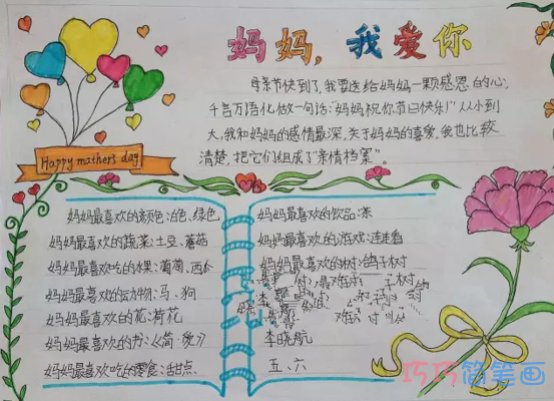 妈妈，我爱你
母亲节快到了，我要送给妈妈一颗感恩的心，
千言万语化做一句话："妈妈祝你节日快乐！"从小到
大，我和妈妈的感情最深，关于妈妈的喜爱，我也比较
清楚，把它们组成了"亲情档案"。
Happy mather's day
妈妈最喜欢的颜色：白色、绿色
妈妈最喜欢的蔬菜：土豆、蘑菇
妈妈最喜欢吃的水果：葡萄、西
妈妈最喜欢的动物：马、狗
妈妈最喜欢的花：荷花
妈妈最喜欢的书：《简·爱》
妈妈最喜欢吃的零食：甜点
妈妈最喜欢的饮品：茶
妈妈最喜欢的游戏：连连看
妈妈最喜欢的树：鸽子树
李晓航
五、六
巧巧简笔画